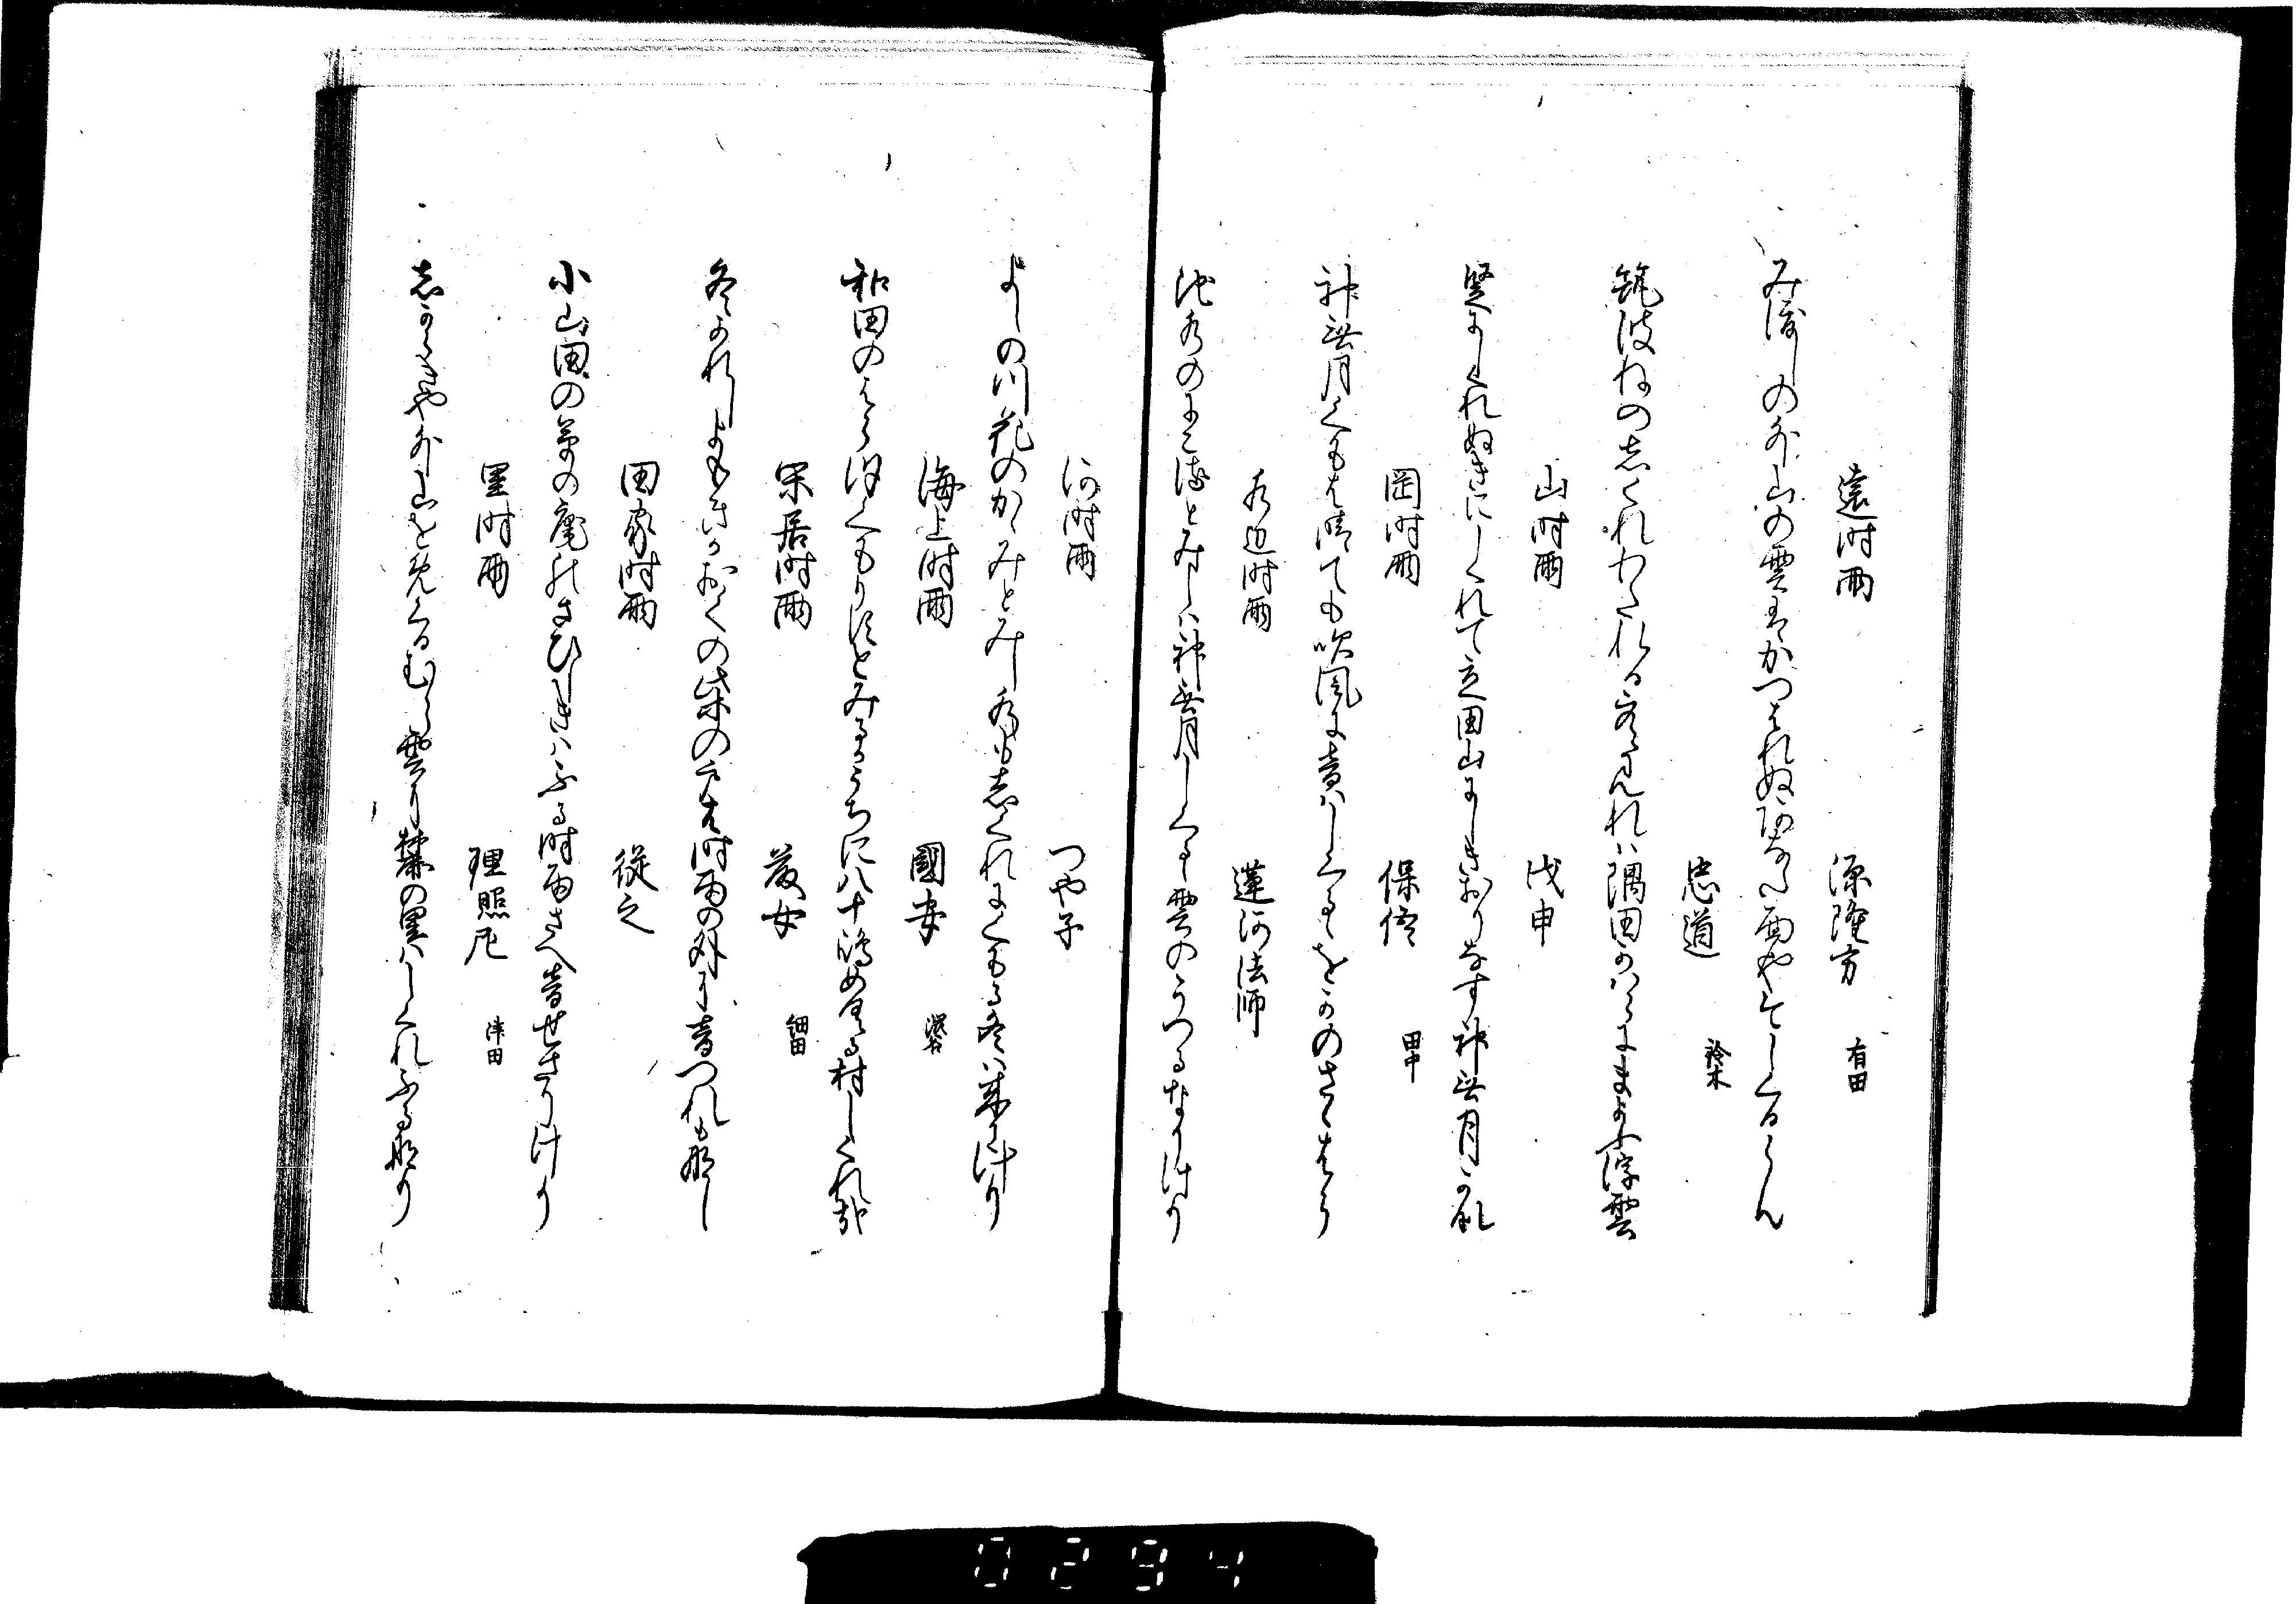 遠時雨 源隆方 有田
みわたしの外山の雲はかつはれぬ  や   しくるらん
忠道 鈴木
筑波ねのしくれわたれる  みれは隅田かはらにまよふ浮雲
山時雨 戊申
  しくれぬきにしくれて立田山にしきおりなす神無月かな
岡時雨 保信 田中
神無月くもは晴ても吹風に音はしくるゝをかのさゝはら
水辺時雨 蓮阿法師
池水のにこるとみしは神無月しくるゝ雲のうつるなりけり
河時雨 つや子
よしの川花のかゝみとみし水もしくれにくもる冬は来にけり
海上時雨 國安
和田のはらほのくもりすとみるかうちに八十嶋めくる村しくれ哉
閑居時雨 茂女 細田
冬かれしよもきかおくの柴の戸は時雨の外に音つれも那し
田家時雨 従之
小山田の庵のさひしきはふる時雨さへ音せさりけり
里時雨 理照尼 津田
しからきや外山をめくるむら雲に麓の里はしくれふる那り
0294